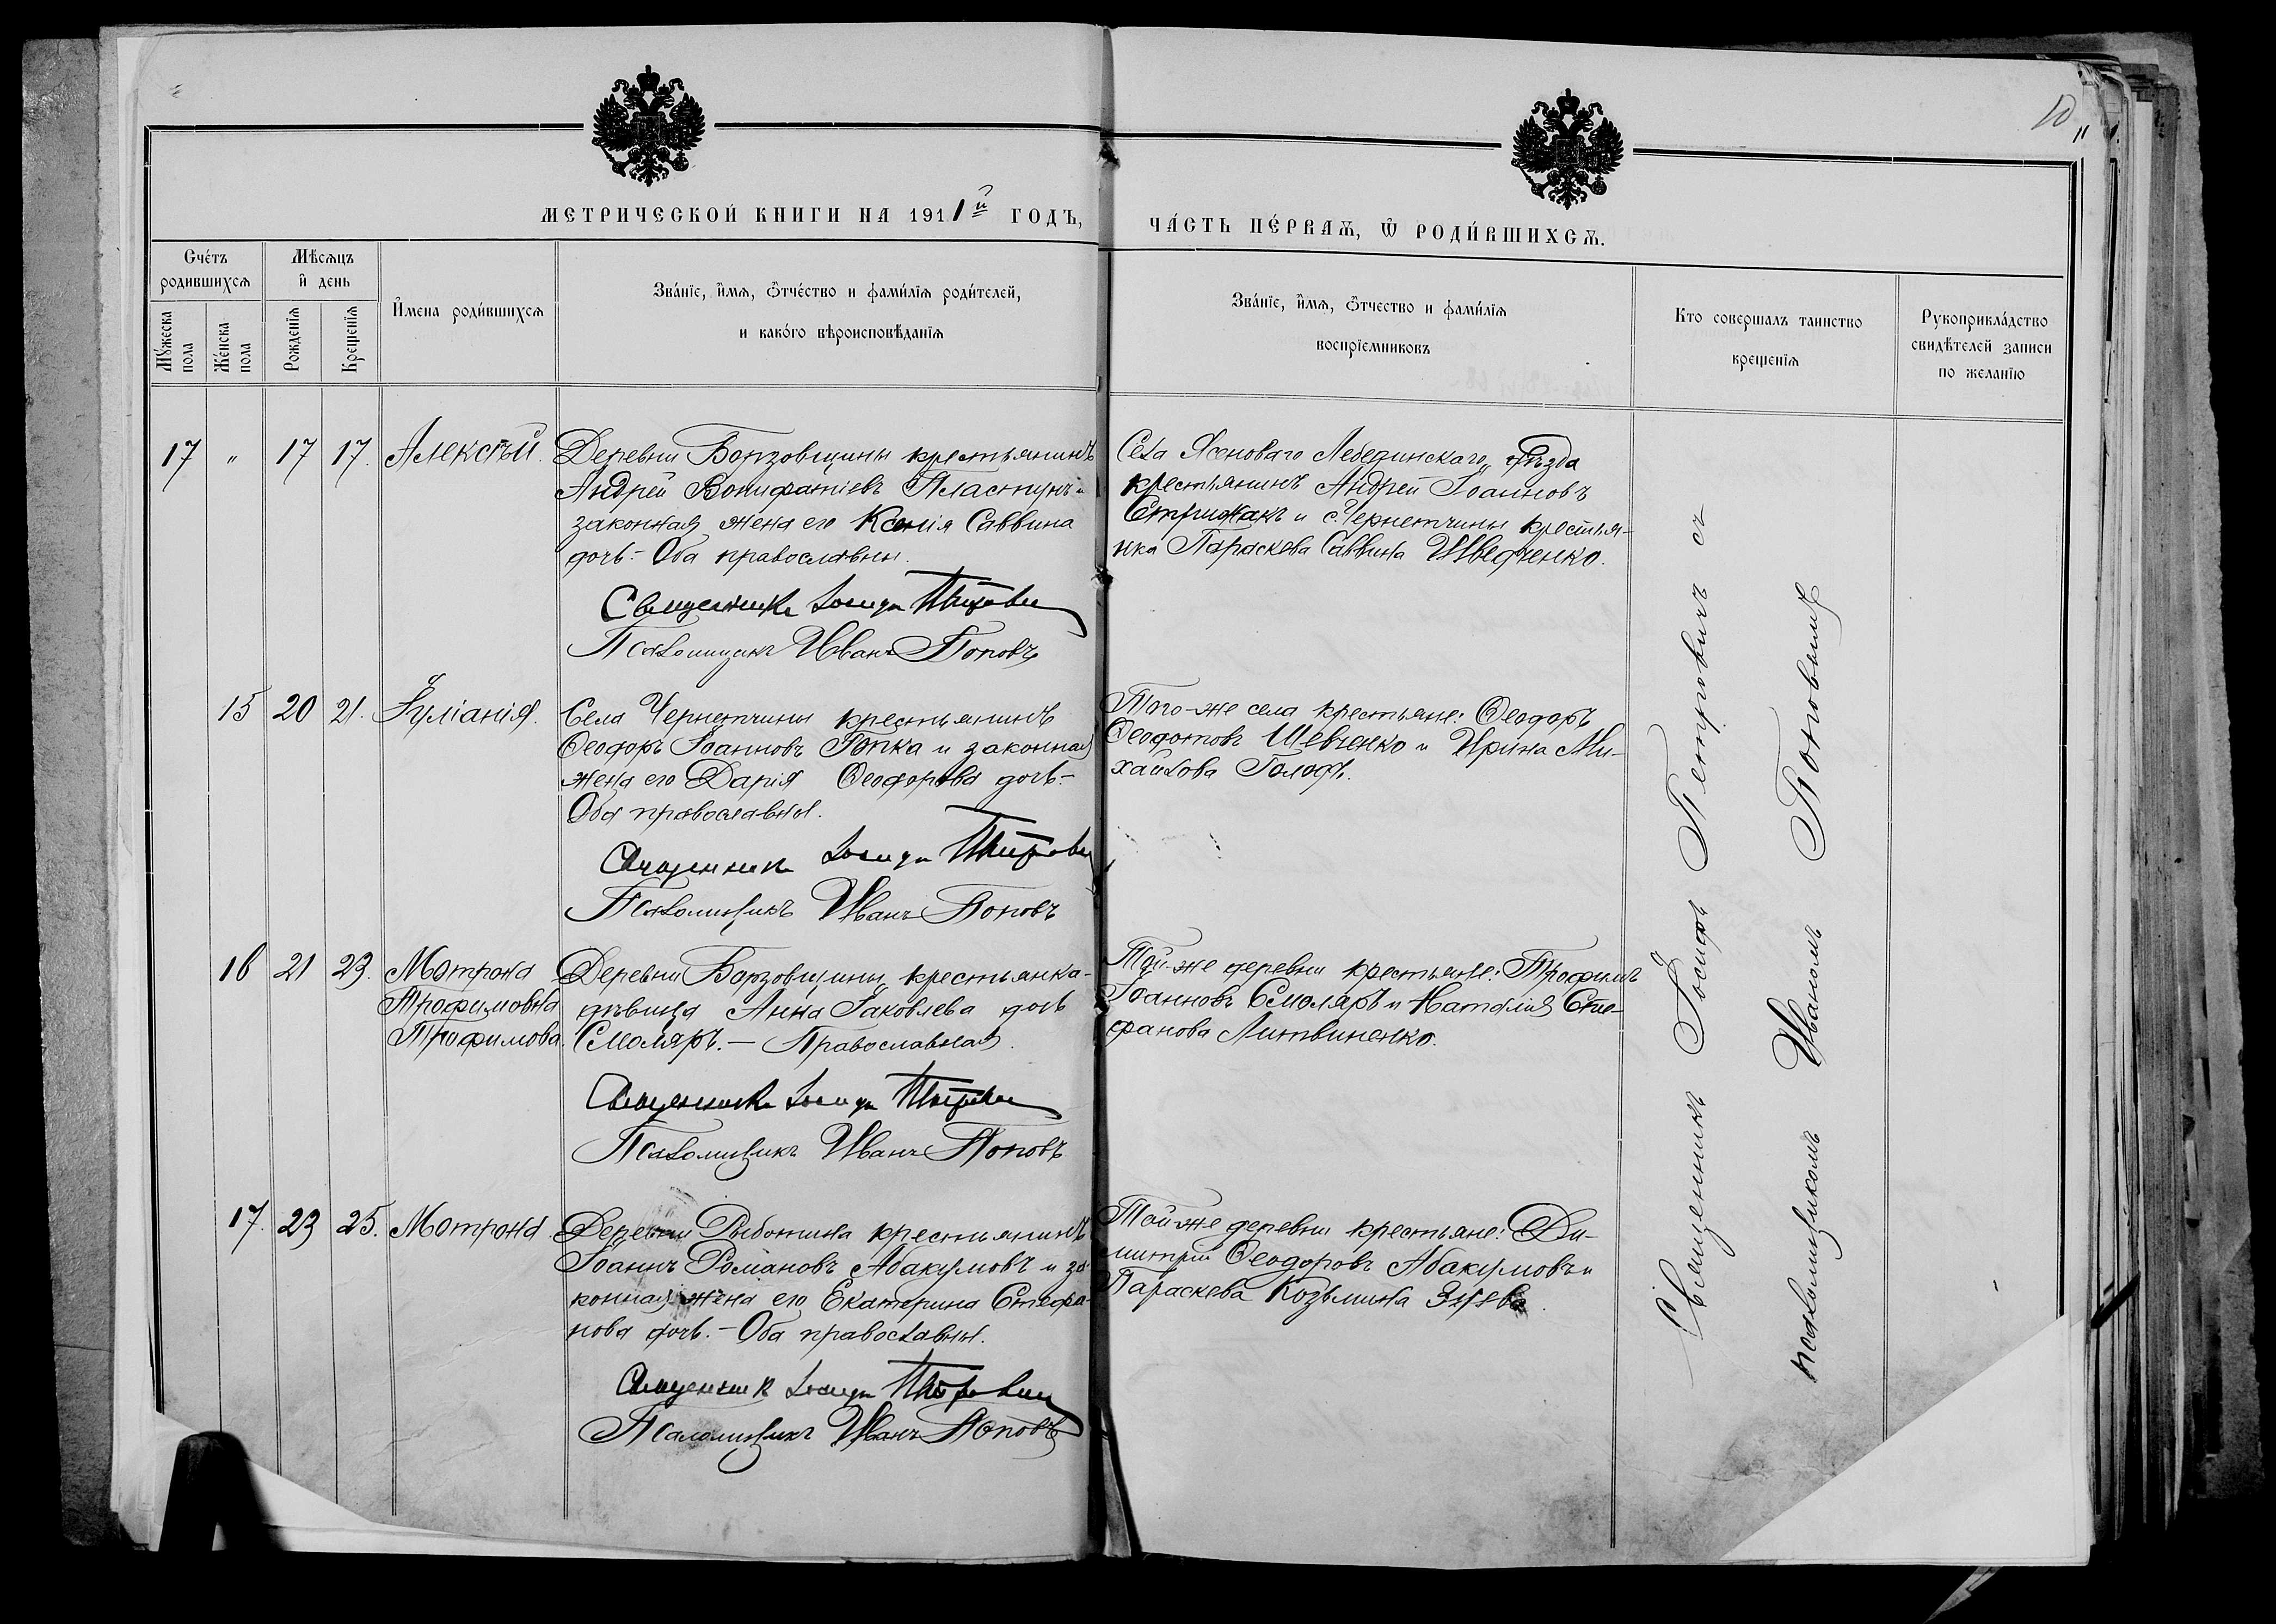 10
МЕТРИЧЕСКОЙ КНИГИ НА 1911й ГОДЪ,
ЧА́СТЬ ПЕ́РВАѦ, Ѿ РОДИ́ВШИХСѦ.
Сче́тъ родившихсѧ
Мѣсѧцъ и҆ день
Му́жеска пола
Же́нска пола
Рожденїѧ
Крещенїѧ
И҆мена роди́вшихсѧ
Зва́нїе, и҆́мѧ, ѻ҆тче́ство и фами́лїѧ роди́телей,
и како́го вѣроисповѣданїѧ
Зва́нїе, и҆́мѧ, ѻ҆тчество и фами́лїѧ
воспрїемниковъ
Кто совершалъ таинство
крещенїѧ
Рукоприкла́дство
свидѣтелей записи
по желанїю
17 " 17 17. Алексѣй.
Деревни Борзовщины крестьянинъ
Андрей Вонифатіевъ Пластунъ и
законная жена его Ксенія Саввина
дочь.- Оба православны.
Священникъ Іосифъ Петровичъ
Псаломщикъ Иванъ Поповъ
Села Ясеноваго Лебединскаго уѣзда
крестьянинъ Андрей Іоанновъ
Стрижакъ и с. Чернетчины крестьян-
ка Параскева Саввина Шведченко.
15 20 21. Іуліанія.
Села Чернетчины крестьянинъ
Ѳеодоръ Іоанновъ Гопка и законная
жена его Дарія Ѳеодорова дочь.-
Оба православны.
Священникъ Іосифъ Петровичъ
Псаломщикъ Иванъ Поповъ
Того-же села крестьяне: Ѳеодоръ
Ѳеодотовъ Шевченко и Ирина Ми-
хайлова Голодъ.
16 21 23. Матрона
Трофимовна
Трофимова.
Деревни Борзовщины крестьянка-
дѣвица Анна Іаковлева дочь
Смоляръ.- Православная.
Священникъ Іосифъ Петровичъ
Псаломщикъ Иванъ Поповъ
Той-же деревни крестьяне: Трофимъ
Іоанновъ Смоляръ и Наталія Сте-
фанова Литвиненко.
17. 23 25. Матрона.
Деревни Рыботина крестьянинъ
Іоаннъ Романовъ Абакумовъ и за-
конная жена его Екатерина Стефа-
нова дочь.- Оба православны.
Священникъ Іосифъ Петровичъ
Псаломщикъ Иванъ Поповъ
Той-же деревни крестьяне: Ди-
митрій Ѳеодоровъ Абакумовъ и
Параскева Козьмина Зуева.
Священникъ Іосифъ Петровичъ съ
псаломщикомъ Иваномъ Поповымъ